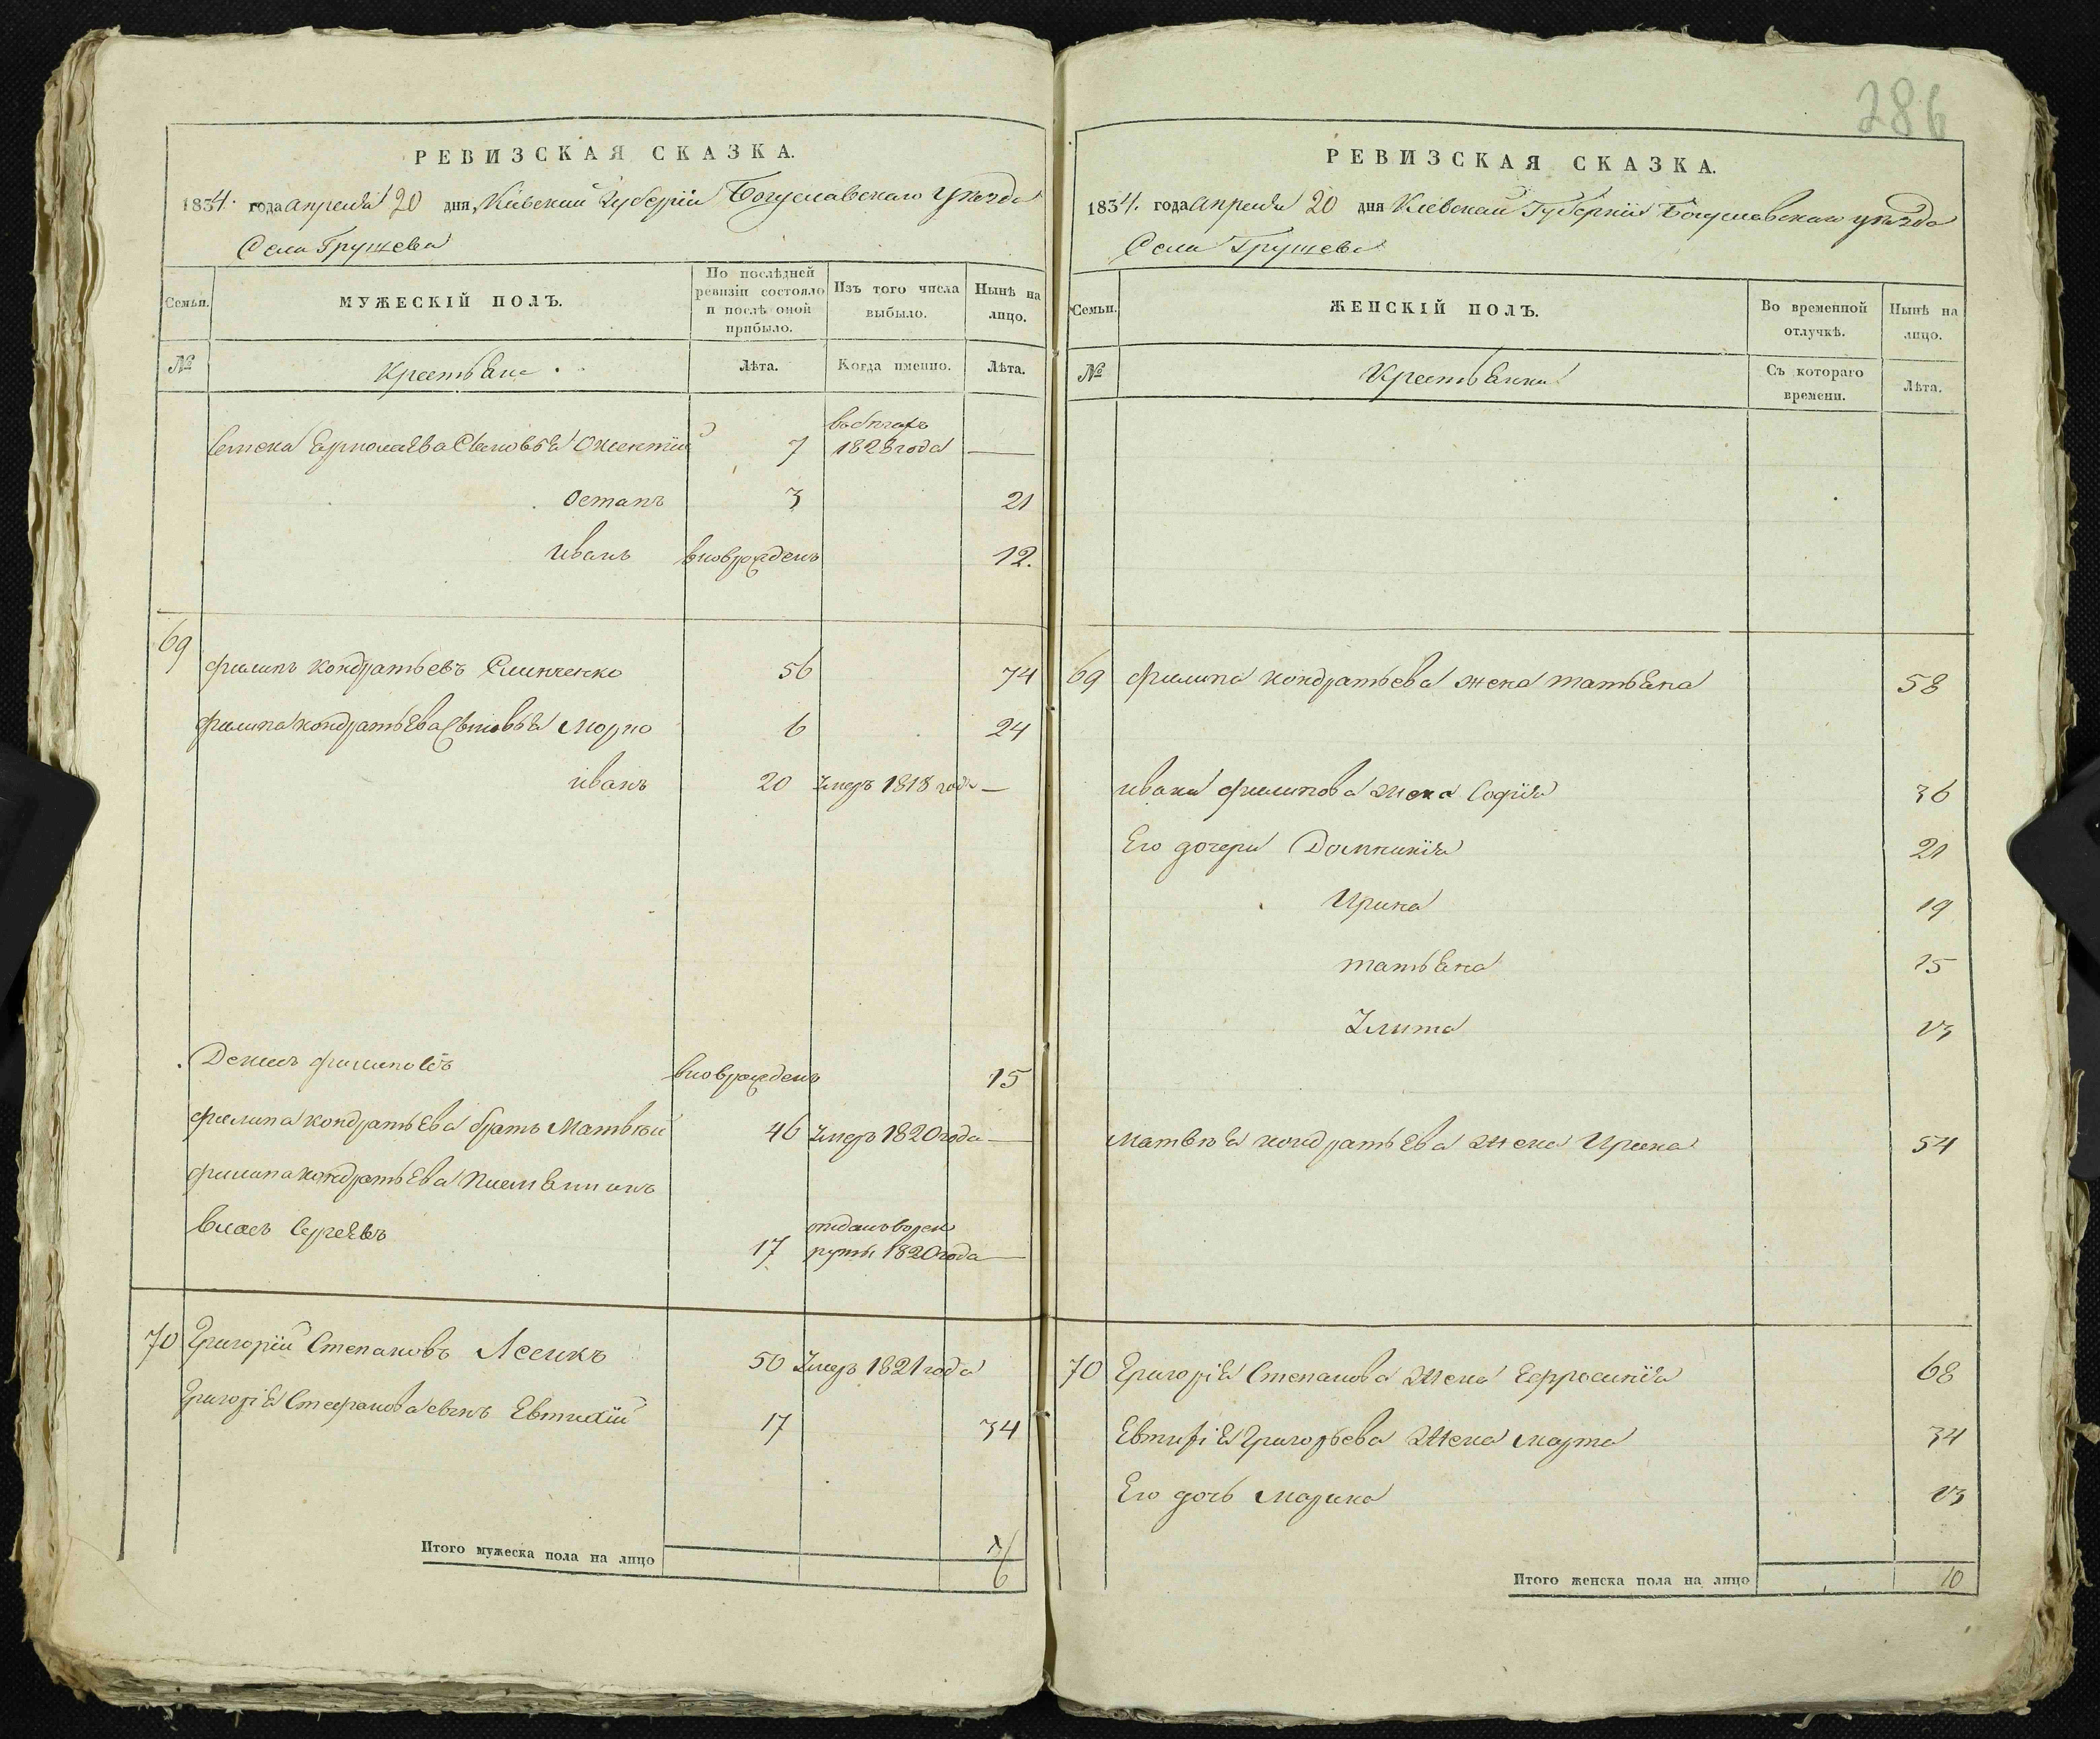 286
РЕВИЗСКАЯ СКАЗКА.
1834. года апреля 20 дня, Кіевской Губерніи Богуславскаго уѣзда
Села Грушева
Семьи. МУЖЕСКІЙ ПОЛЪ. По послѣдней ревизіи состояло и послѣ оной прибыло. Изъ того числа выбыло. Нынѣ на лицо.
№ Крестьяне Лѣта. Когда именно. Лѣта.
Ермолаева Сыновья 7 въ бѣгахъ 1828 года —
Остапъ 3 21
Иванъ вновьрожденъ 12.
69 Филипъ Кондратьевъ 56 74
Филипа Кондратьева Сыновья Марко 6 24
Иванъ 20 умеръ 1818 года —
Филиповъ вновьрожденъ 15
Филипа Кондратьева братъ Матвѣй 46 умеръ 1820 года —
Филипа Кондратьева племянникъ
Власъ Сергѣевъ 17 отданъ в рекруты 1820 года —
70 Григорій Степановъ 50 умеръ 1821 года
Григорія Стефанова сынъ Евтихій 17 34
Итого мужеска пола на лицо 6
РЕВИЗСКАЯ СКАЗКА.
1834. года апреля 20 дня Кіевской Губерніи Богуславскаго уѣзда
Села Грушева
Семьи. ЖЕНСКІЙ ПОЛЪ. Во временной отлучкѣ. Нынѣ на лицо.
№ Крестьянки Съ котораго времени. Лѣта.
69 Филипа Кондратьева жена Татьяна 58
Ивана Филипова жена Софія 36
Его дочери Домникія 21
Ирина 19
Татьяна 15
Улита 13
Матвѣя Кондратьева жена Ирина 54
70 Григорія Степанова жена Ефросинія 68
Евтихія Григорьева жена Марта 34
Его дочь Марина 13
Итого женска пола на лицо 10